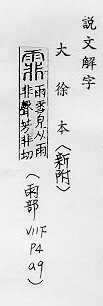 説文解字
大徐本〈新附〉
霏
雨雪皃从雨
非聲芳非切
(雨部
VII下
P4
a9)